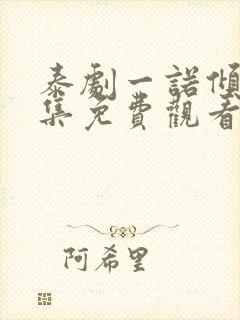 泰劇一諾傾
集免費觀看
阿希里